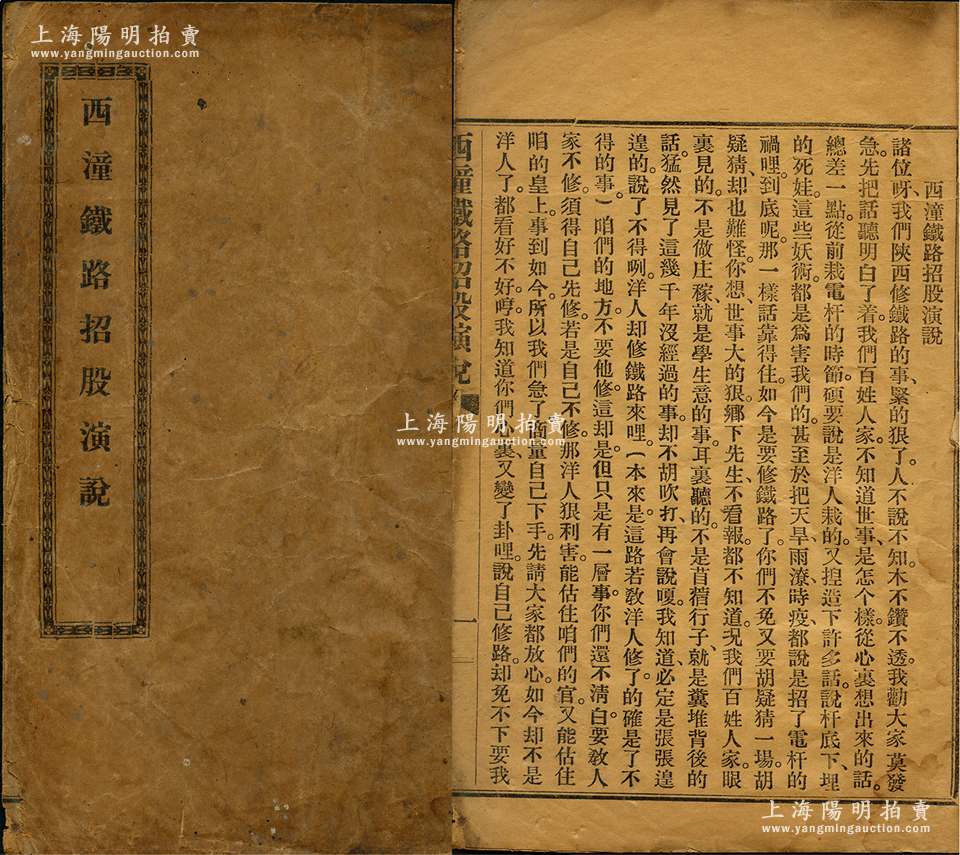 上海陽明拍賣
www.yangmingauction.com
西潼鐵路招股演說
上海陽明拍賣
www.yangmingauction.com
西潼鐵路招股演說
諸位呀、我們陝西修鐵路的事、緊的狠了。人不說不知、木不鑽不透。我勸大家莫發
急。先把話聽明白了着。我們百姓人家、不知道世事、是怎个樣。從心裏想出來的話。
總差一點。從前栽電杆的時節。硬要說是洋人栽的。又揑造下許多話。說杆底下、埋
的死娃。這些妖術。都是爲害我們的。甚至於把天旱雨潦、時疫、都說是招了電杆的
禍哩。到底呢。那一樣話靠得住。如今是要修鐵路了。你們不免又要胡疑猜一場。胡
疑猜、却也難怪。你想、世事大的狠。鄉下先生、不看報、都不知道。况我們百姓人家。眼
裏見的。不是做庄稼、就是學生意的事。耳裏聽的。不是苜蓿行子、就是糞堆背後的
話。猛然見了這幾千年沒經過的事。却不胡吹打、再會說嗄。我知道、必定是張張遑
遑的說。了不得咧。洋人却修鐵路來哩。(本來是這路若敎洋人修了的確是了不
得的事)咱們的地方。不要他修。這却是。但只是有一層事。你們還不淸白。要敎人
家不修。須得自己先修。若是自己不修。那洋人狠利害。能估住咱們的官。又能估住
咱的皇上。事到如今。所以我們急了。商量自己下手。先請大家都放心。如今却不是
洋人了。都看好不好。哼、我知道你們心裏、又變了卦哩。說自己修路。却免不下要我
西潼鐵路招股演說
一
上海陽明拍賣
www.yangmingauction.com
上海陽明拍賣
www.yangmingauction.com